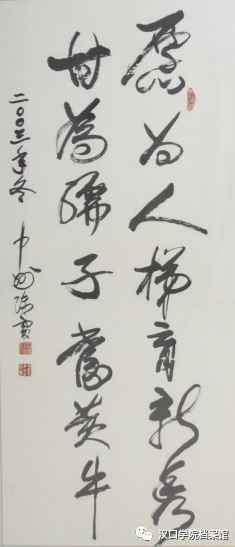 愿为人梯育新秀
甘为孺子当黄牛
二〇〇三年冬
汉口学院档案馆